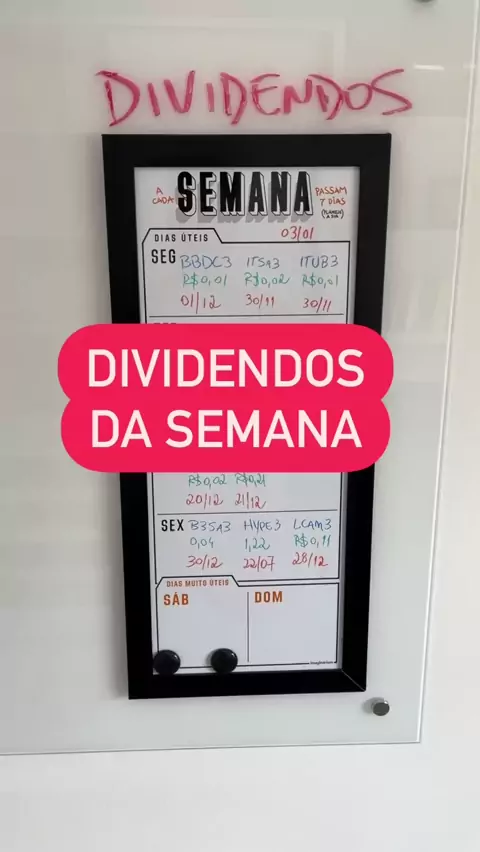 DIVIDENDOS
A CADA: SEMANA PASSAM 7 DIAS
(PLANEJE A SUA)
03/01
DIAS ÚTEIS
SEG BBDC3 ITSA3 ITUB3
R$0,01 R$0,02 R$0,01
01/12 30/11 30/11
DIVIDENDOS
DA SEMANA
R$0,02 R$0,21
20/12 21/12
SEX B3SA3 HYPE3 LCAM3
0,04 1,22 R$0,11
30/12 22/07 28/12
DIAS MUITO ÚTEIS
SÁB DOM
imaginarium